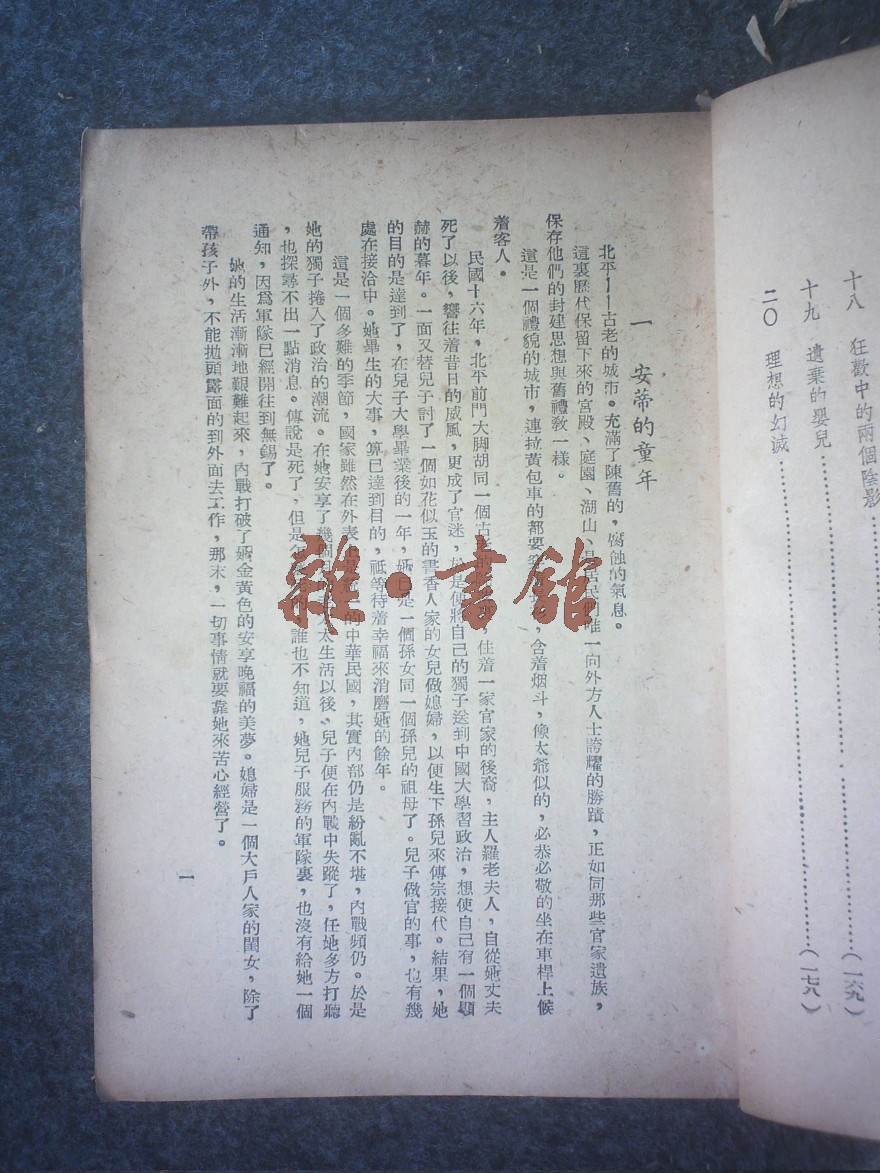 十八　狂歡中的兩個陰影……………………（一六九）
十九　遺棄的嬰兒……………………（一七八）
二〇　理想的幻滅……………………
一　安蒂的童年
北平——古老的城市。充滿了陳舊的，腐蝕的氣息。
這裏歷代保留下來的宮殿、庭園、湖山、是居民們唯一向外方人士誇耀的勝蹟，正如同那些官家遺族，
保存他們的封建思想與舊禮教一樣。
這是一個禮貌的城市，連拉黃包車的都要，含着烟斗，像太爺似的，必恭必敬的坐在車桿上候
着客人。
民國十六年，北平前門大脚胡同一個古老的，住着一家官家的後裔，主人羅老夫人，自從她丈夫
死了以後，響往着昔日的威風，更成了官迷，於是便將自己的獨子送到中國大學習政治，想使自己有一個顯
赫的暮年。一面又替兒子討了一個如花似玉的書香人家的女兒做媳婦，以便生下孫兒來傳宗接代。結果，她
的目的是達到了，在兒子大學畢業後的一年，她已是一個孫女同一個孫兒的祖母了。兒子做官的事，也有幾
處在接洽中。她畢生的大事，算已達到目的，祇等待着幸福來消磨她的餘年。
這是一個多難的季節，國家雖然在外表上的中華民國，其實內部仍是紛亂不堪，內戰頻仍。於是
她的獨子捲入了政治的潮流。在她安享了幾個月太生活以後、兒子便在內戰中失蹤了，任她多方打聽
，也探尋不出一點消息。傳說是死了，但是誰也不知道，她兒子服務的軍隊裏，也沒有給她一個
通知，因爲軍隊已經開往到無錫了。
她的生活漸漸地艱難起來，內戰打破了她金黃色的安享晚福的美夢。媳婦是一個大戶人家的閨女，除了
帶孩子外，不能拋頭露面的到外面去工作，那末，一切事情就要靠她來苦心經營了。
一
雜·書館